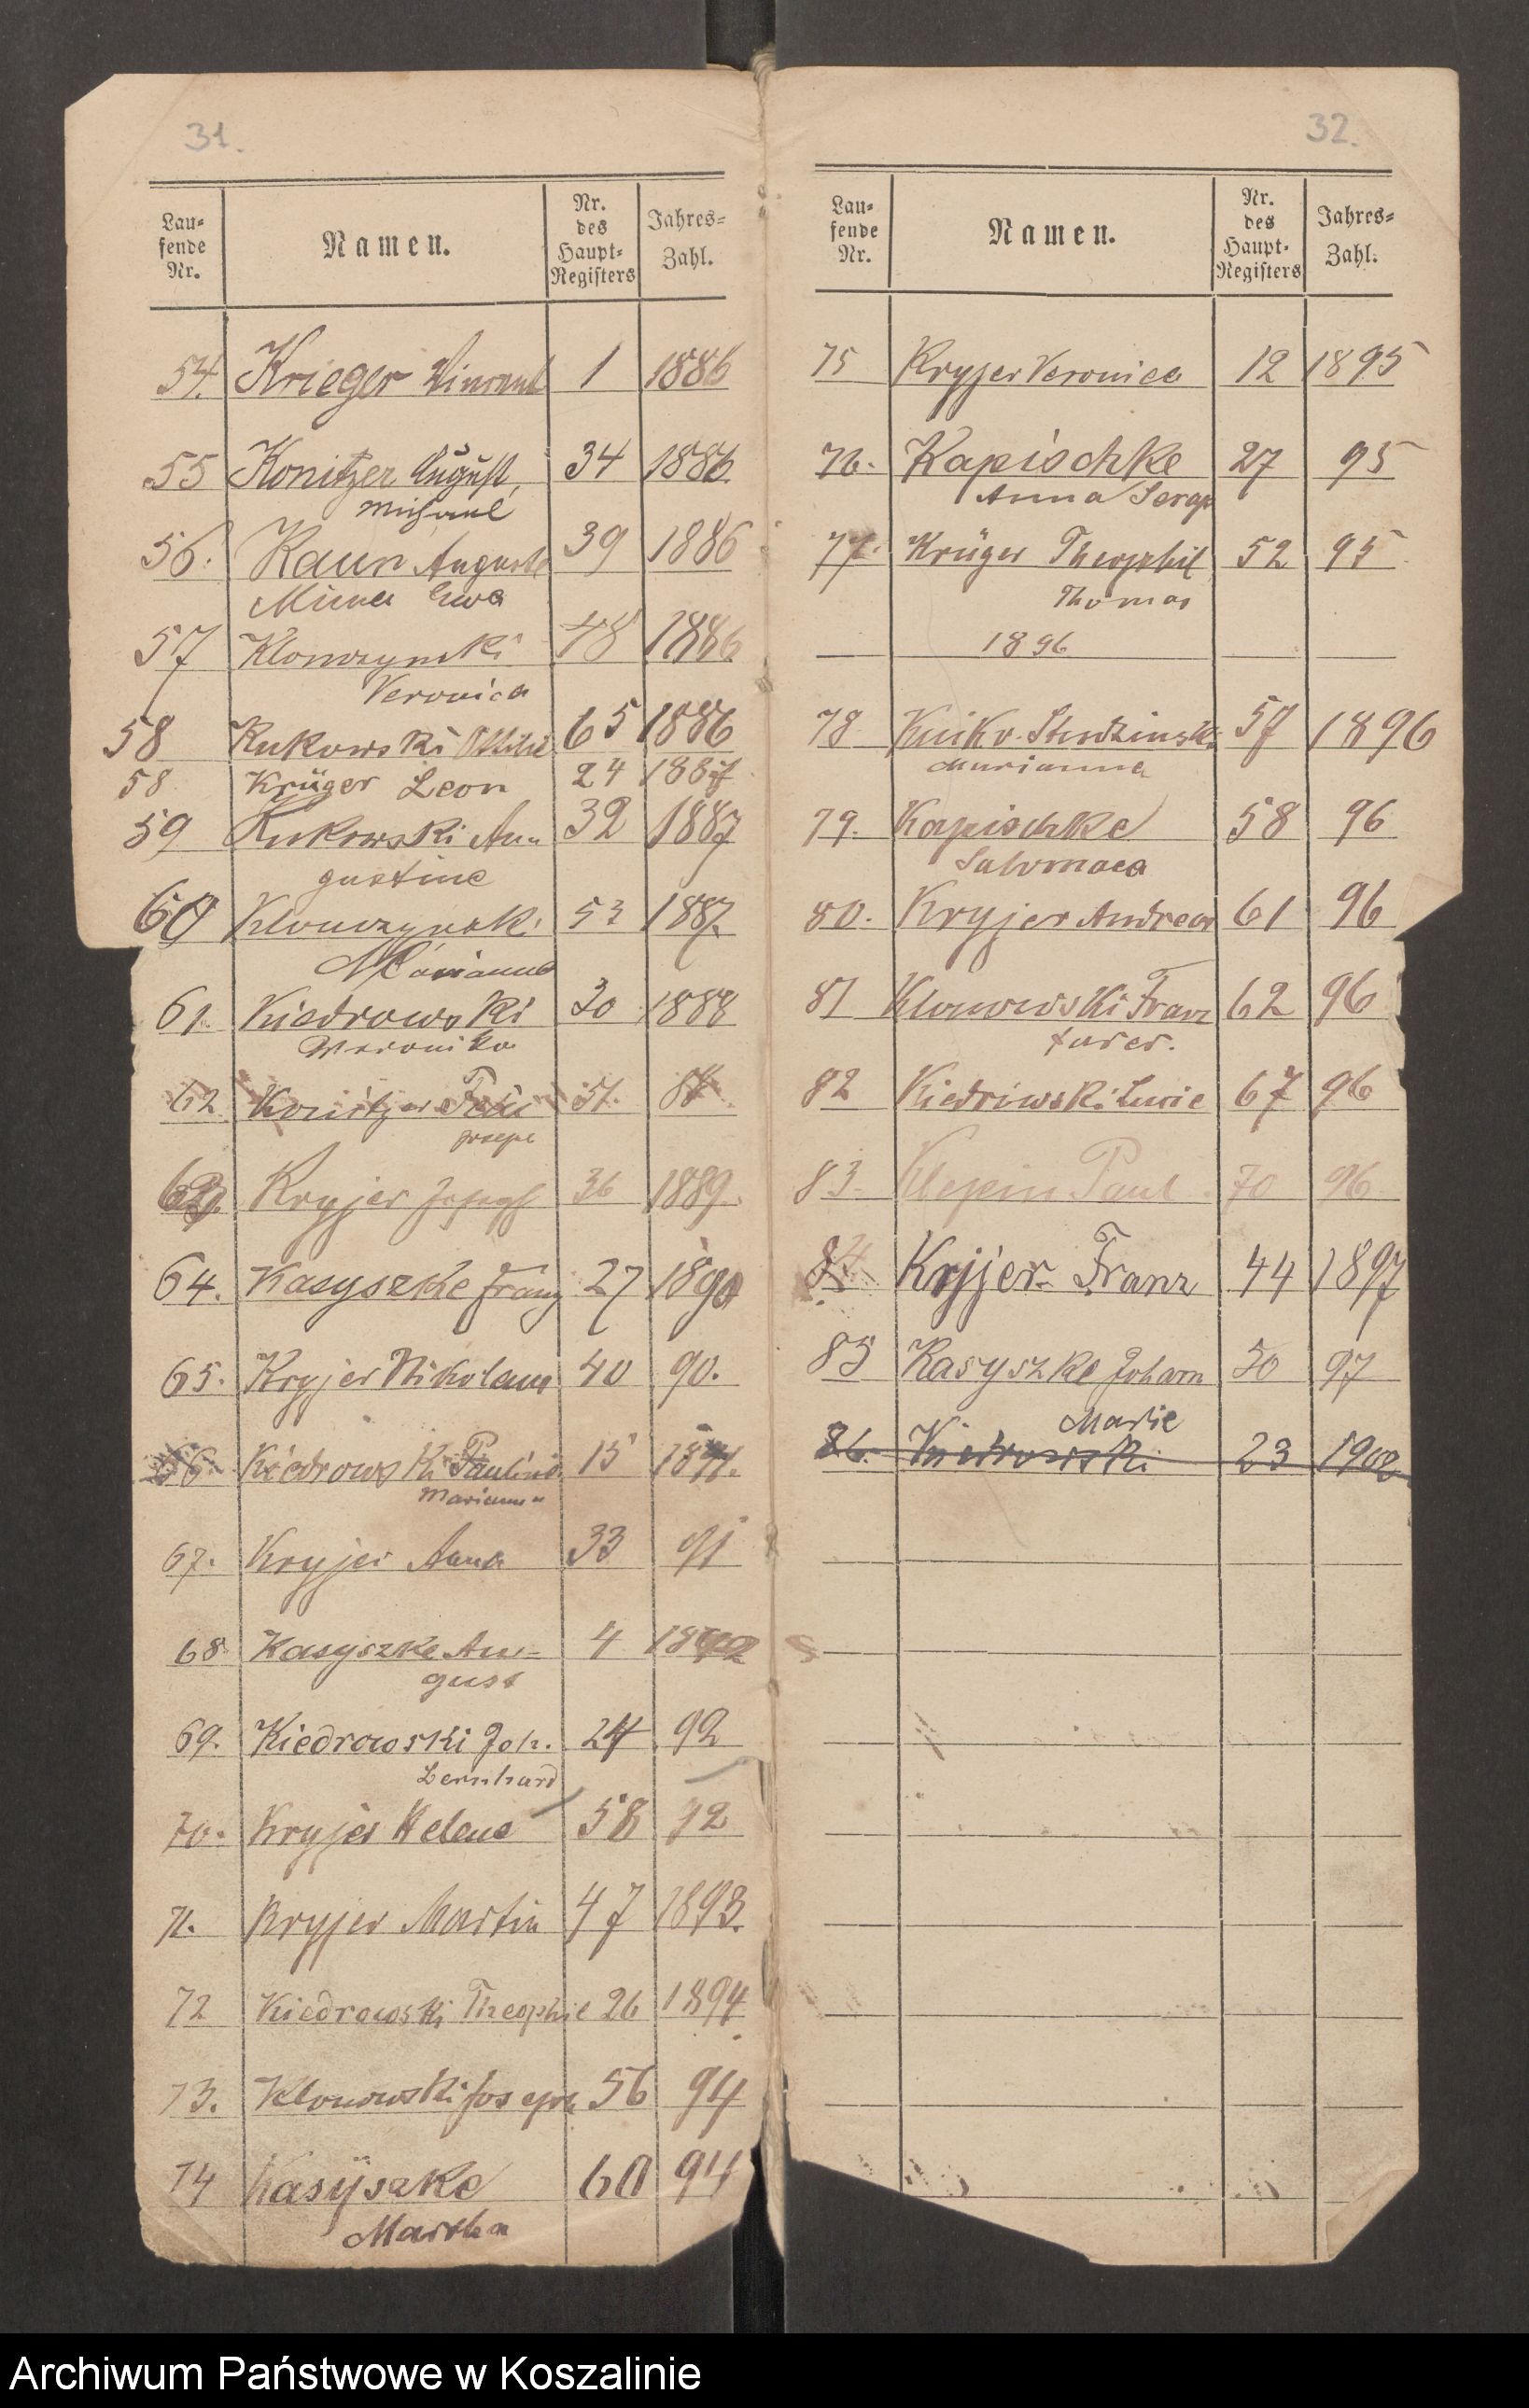 31.
Lau-
fende
Nr.
Namen.
Nr.
des
Haupt-
Registers
Jahres-
Zahl.
54. Krieger Vincent 1 1886
55 Konitzer August, 34 1886.
Michael
56. Kaun Auguste 39 1886
Minna Ewa
57 Klonczynski 48 1886.
Veronica
58 Kukowski Ottilie 65 1886
58 Krüger Leon 24 1887
59 Kukowski Au- 32 1887
gustine
60 Klonczynski 53 1887.
Marianna
61. Kiedrowski 30 1888
Weronika
62. Konitzer 51. 88
Joseph
63. Kryjer Joseph 36 1889.
64. Kasyszke Franz 27 1890
65. Kryjer Nikolaus 40 90.
66. Kiedrowski Pauline 15 1891.
Marianna
67. Kryjer Anna 33 91
68. Kasyszke Au- 4 1892
gust
69. Kiedrowski Joh. 24 92
Bernhard
70. Kryjer Helene 58 92
71. Kryjer Martin 47 1893.
72 Kiedrowski Theophil 26 1894
73. Klonowski Joseph 56 94
74 Kasÿszke 60 94
Martha
32.
Lau-
fende
Nr.
Namen.
Nr.
des
Haupt-
Registers
Jahres-
Zahl.
75 Kryjer Veronica 12 1895
76. Kapischke 27 95
Anna Serap
77. Krüger Theophil 52 95
Thomas
1896
78 Kuik v. Studzinski 57 1896
Marianna
79. Kapischke 58 96
Salomaea
80. Kryjer Andreas 61 96
81 Klonowski Franz 62 96
Xaver.
82 Kiedriwski Lucie 67 96
83. Klepin Paul 70 96
84. Kryjer Franz 44 1897
85 Kasyszke Johann 50 97
Marie
86. Kiedrowski 23 1902
Archiwum Państwowe w Koszalinie